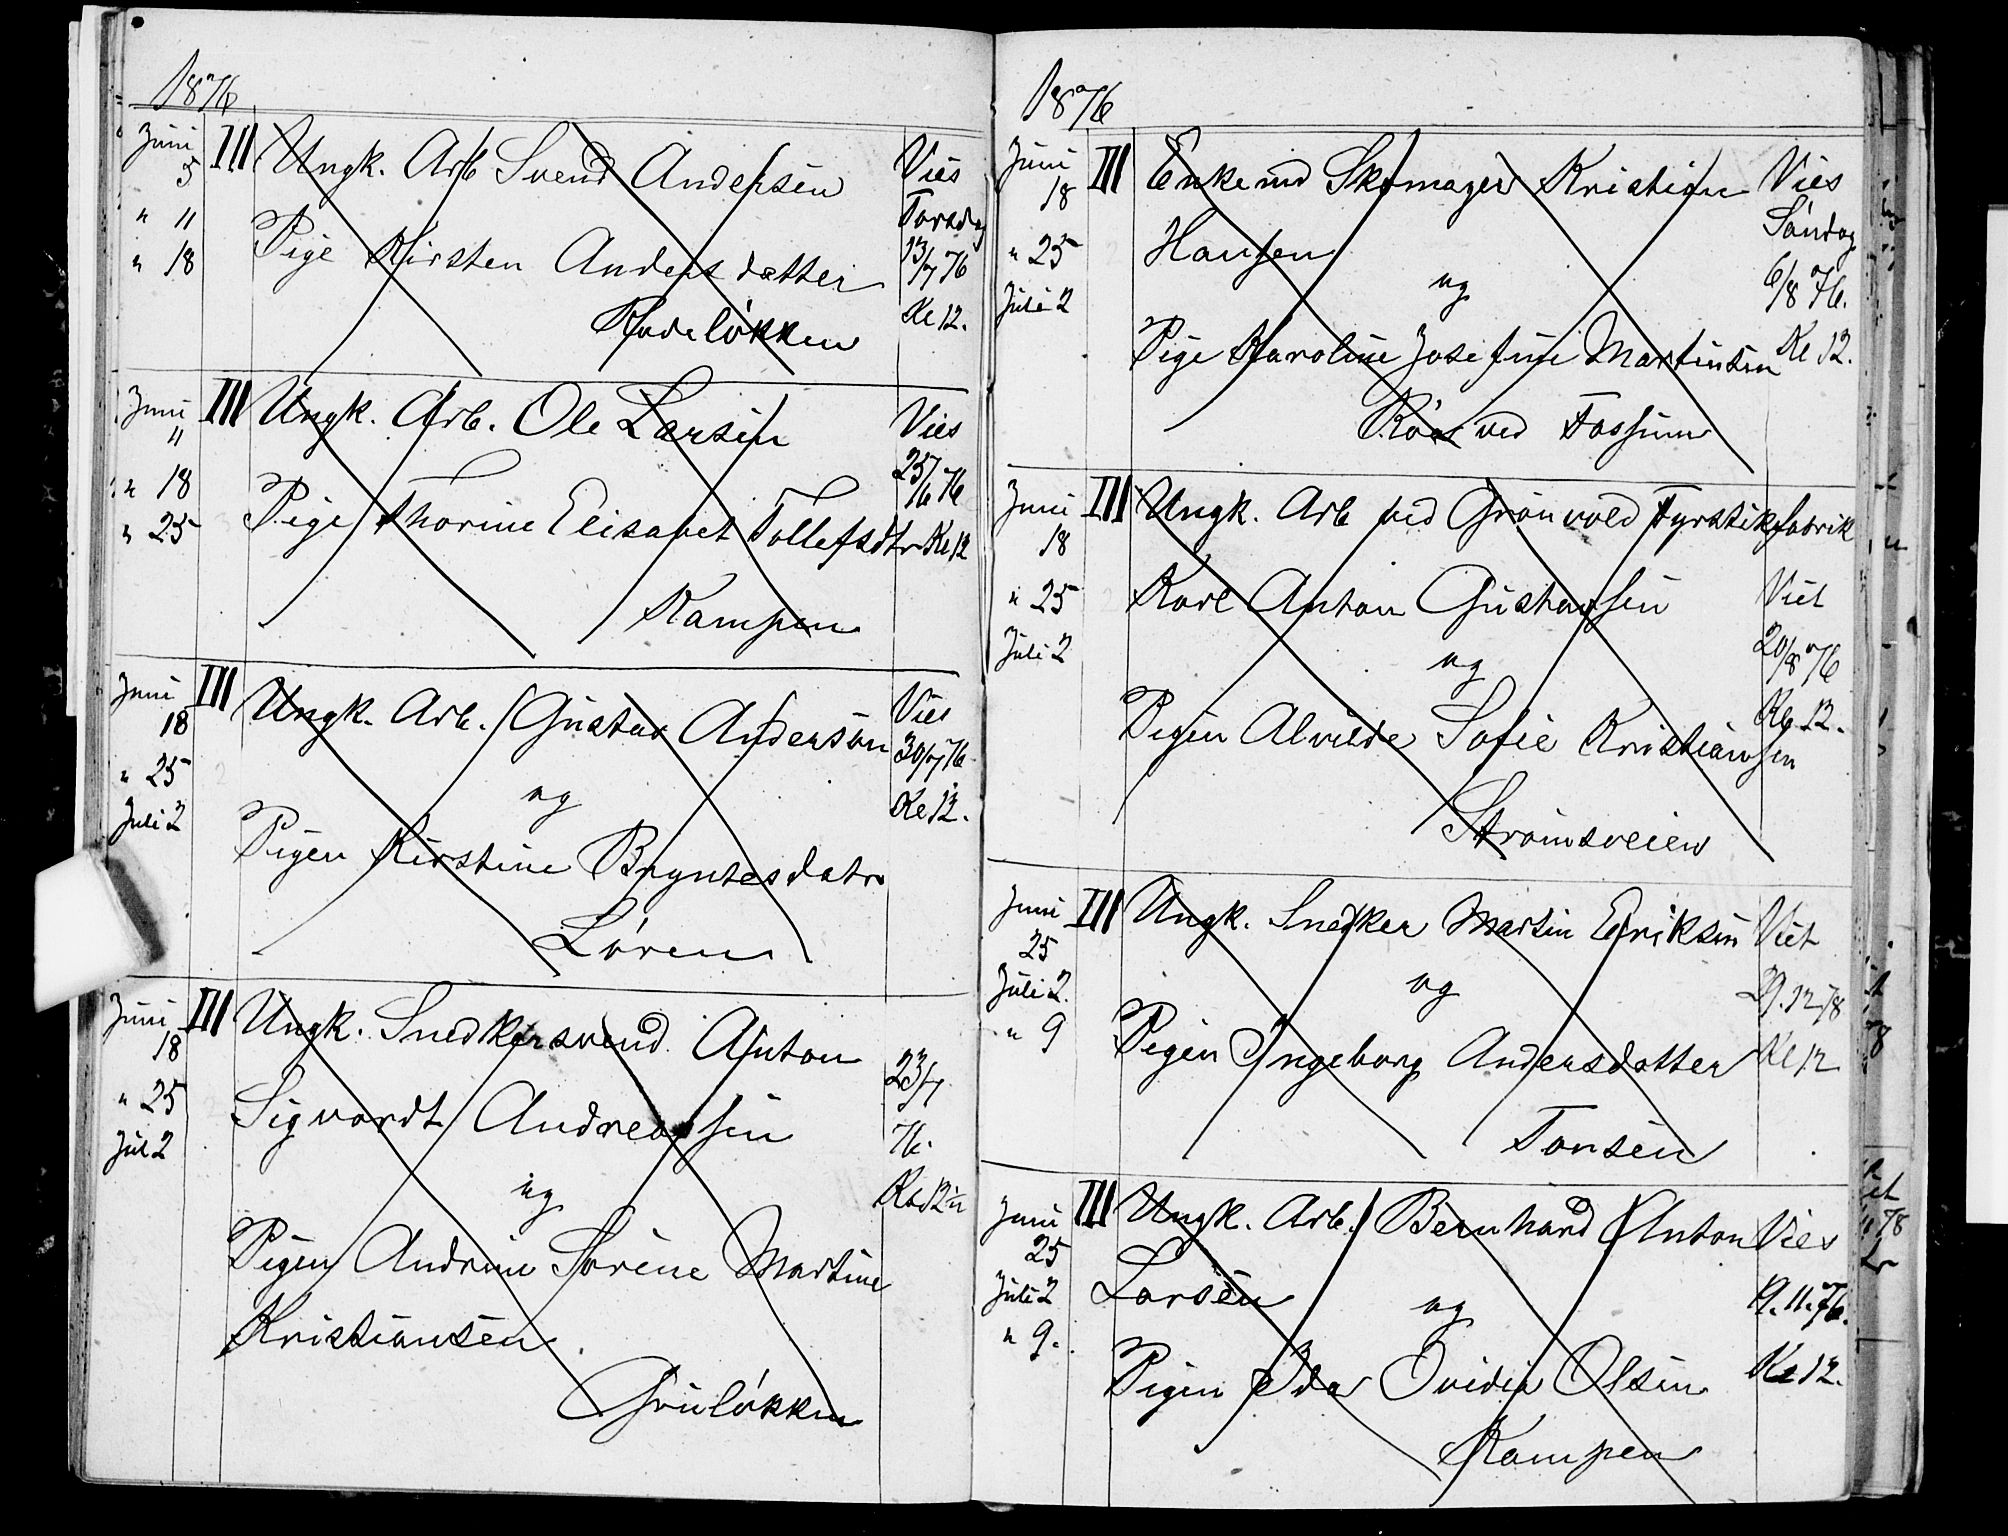 1876
Juni 5 III Ungk. Arb Svend Andersen Vies
" 11 Pige Kirsten Andersdatter Torsdag
" 18 Rodeløkken 13/7 76
Kl 12.
Juni 11 III Ungk. Arb. Ole Larsen Vies
" 18 Pige Thorine Elisabet Tollefsdtr 25/6 76
" 25 Kampen Kl 12
Juni 18 III Ungk. Arb. Gustav Anderson Vies
" 25 og 30/7 76
Juli 2 Pigen Kirstine Bryntesdatr Kl 12.
Løren
Juni 18 III Ungk. Snedkersvend Anton
" 25 Sigvardt Andreassen 23/7
Jul 2 og 76.
Pigen Andrine Sørine Martine
Kristiansen.
Grüløkken
1876
Juni 18 III Enkemd Skomager Kristian Vies
" 25 Hansen Søndag
Juli 2 og 6/8 76.
Pige Karoline Josefine Martinsen Kl 12.
Røa ved Fossum
Juni 18 III Ungk. Arb ved Grønvold Fyrstikfabrik
" 25 Karl Anton Gustavsen Viet
Juli 2 og 20/8 76
Pigen Alvilde Sofie Kristiansen Kl. 12.
Strømsveien
Juni 25 III Ungk. Snedker Martin Eriksen Viet
Juli 2. og 29.12 78
" 9 Pigen Ingeborg Andersdatter Kl 12
Tonsen
Juni 25 III Ungk. Arb. Bernhard Anton Vies
Juli 2 Larsen og 19.11.76.
" 9. Pigen Ida Ovidia Olsen Kl 12.
Kampen